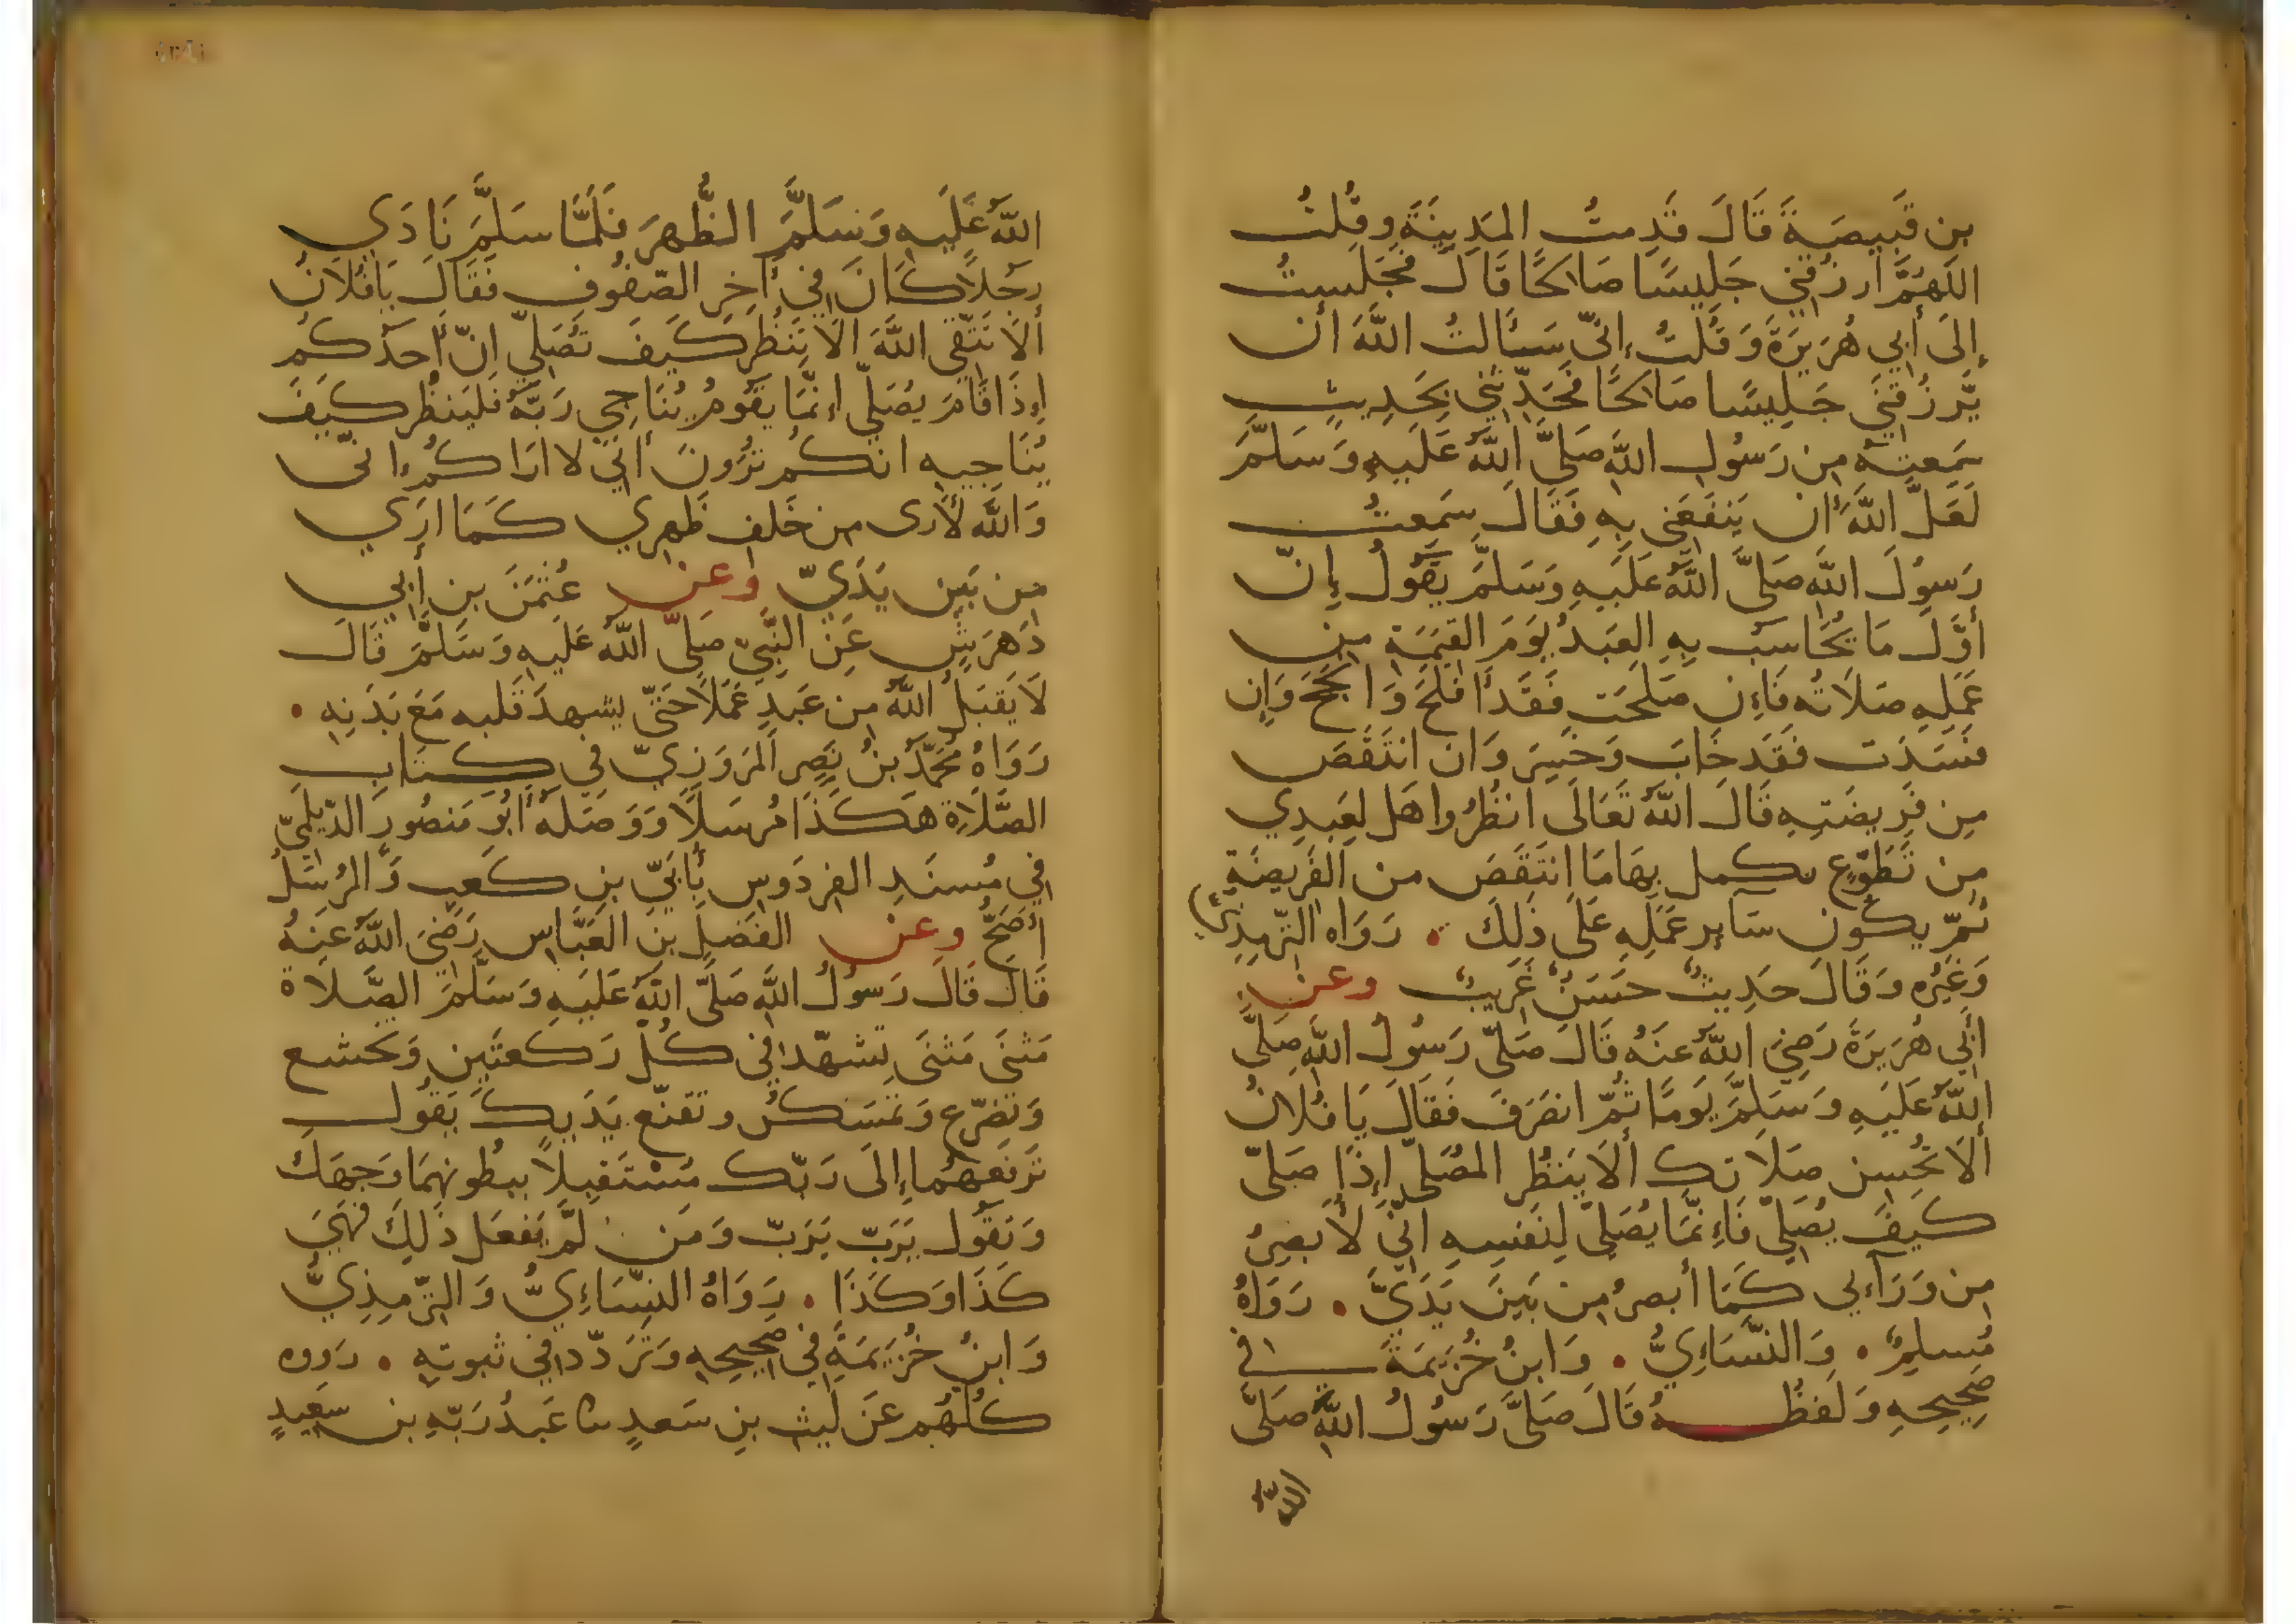 بِن قَبِيصَةَ قَالَ قَدِمتُ المَدِينَةَ وقُلتُ
اللَهُمَّ ارزُقنِي جَلِيسًا صَالحًا قَالَ فَجَلَستُ
إلَى أبِي هُرَيرَةَ وَقُلتُ إنّي سَئَالتُ اللَّهَ أن
يَّرزُقَنِي جَلِيسًا صَالحًا فَحَدِّثنِي بِحَدِيثٍ
سَمِعتَهُ مِن رَسُولِ اللَّهِ صَلَّى اللَّهُ عَلَيهِ وَسَلَّمَ
لَعَلَّ اللَّهَ أن يَنفَعَنِي بِهِ فَقَالَ سَمِعتُ
رَسولَ اللَّهِ صَلَّى اللَّهُ عَلَيهِ وَسَلَّمَ يَقُولُ إنّ
أوَّلَ مَا يُحَاسَبُ بِهِ العَبدُ يَومَ القِيَمَةِ مِن
عَمَلِهِ صَلَاتُه فَإن صَلَحَت فَقَد أفلَحَ وَأنجَحَ وَإن
فَسَدَت فَقَد خَابَ وَخَسِرَ وَان انتَقَصَ
مِن فَرِيضَتِهِ قَالَ اللَّهُ تَعَالَى انظُرُوا هَل لِعَبدِي
مِن تَطَوّعٍ يكمل بِهَا مَا انتَقَصَ من الفَرِيضَةِ
ثمّ يكُونُ سَايِر عَمَلِهِ عَلَى ذَلِكَ • رَوَاه التّرمِذِيّ
وَغَيرُه وَقَالَ حَدِيثٌ حَسَنٌ غَرِيبٌ وعن
أبِي هُرَيرَةَ رَضِيَ اللَّهُ عَنهُ قَالَ صَلّى رَسُولُ اللَّهِ صَلَّى
اللَّهُ عَلَيهِ وَسَلَّمَ يَومًا ثُمّ انصَرَفَ فَقَالَ يَا فُلانُ
ألَا تُحسِن صَلَاتِك ألَا يَنظُر المُصَلّي إذَا صَلّى
كَيفَ يُصَلّي فَإنّمَا يُصَلّي لِنَفسِهِ انّي لَأبصِرُ
مِن وَرَآءِي كَمَا أبصرُ مِن بَينَ يَدَيَّ • رَوَاهُ
مُسلِمٌ • وَالنّسَاءِيُّ • وَابنُ خُزَيمَةَ فِي
صَحِيحِهِ وَلَفظُهُ قَالَ صَلَّى رَسُولُ اللَّهِ صَلَّى
اللّهُ
اللَّهُ عَلَيهِ وَسَلَّمَ الظُّهرَ فَلَمَّا سَلَّمَ نَادَي
رَجُلًا كَانَ فِي آخِرِ الصّفُوفِ فَقَالَ يَا فُلَانُ
ألَا تَتَّقِي اللَّهَ الَا تَنظُر كَيفَ تُصَلّي انّ أحَدَكُم
اِذَا قَامَ يُصَلّي إنّمَا يَقُومُ يُنَاجِي رَبَّهُ فَليَنظُر كَيفَ
يُنَاجِيهِ انكُم تَرَونَ أنّي لا ارَاكُم إنّى
وَاللَّهِ لَأرَى مِن خَلفِ ظَهرِي كَمَا ارَي
مِن بَينِ يَدَيّ وعن عُثمَنَ بنِ أبِي
دَهرَشٍ عَنِ النَّبِيّ صَلّى اللَّهُ عَلَيهِ وَسَلَّمَ قَالَ
لَا يَقبَلُ اللَّهُ مِن عَبدٍ عَمَلًا حَتّى يشهدَ قَلبه مَعَ بَدَنِهِ •
رَوَاهُ مُحَمَّدُ بنُ نَصرِ المَروَزِيّ فِي كِتَابِ
الصَّلَاةِ هَكَذَا مُرسَلًا وَوَصَلَهُ أبُو مَنصُورِ الدّيلَمِيّ
فِي مُسنَدِ الفِردَوسِ بِأبَيّ بنِ كَعبٍ وَالمُرسَلُ
أصَحُّ وعن الفَضلِ بنِ العَبَّاسِ رَضِيَ اللَّهُ عَنهُ
قَالَ قَالَ رَسولُ اللَّهِ صَلَّى اللَّهُ عَلَيهِ وَسَلَّمَ الصَّلَاة
مَثنَى مَثنَى تشهّد فِي كُلّ رَكعَتَينِ وَتخشع
وَتَضرّع وَتَمَسكُن وتقنّع يَدَيكَ يَقُولُ
تَرفعهُمَا إلَى رَبّكَ مُسْتَقبِلًا ببُطونهمَا وَجهَكَ
وَتَقُول يَرَبّ يَرَبّ وَمَن لَّم يَفعَل ذَلِكَ فَهِيَ
كَذَا وَكَذَا • رَوَاهُ النسَاءِيُّ وَالتّرمِذِيُّ
وَابنُ خُزَيمَةَ فِي صَحِيحِهِ وَتَرَدّد فِي ثبوتِهِ • رَووه
كُلُّهُم عَن لَيثِ بنِ سَعدٍ ثنا عَبدُ رَبّهِ بن سَعِيدٍ